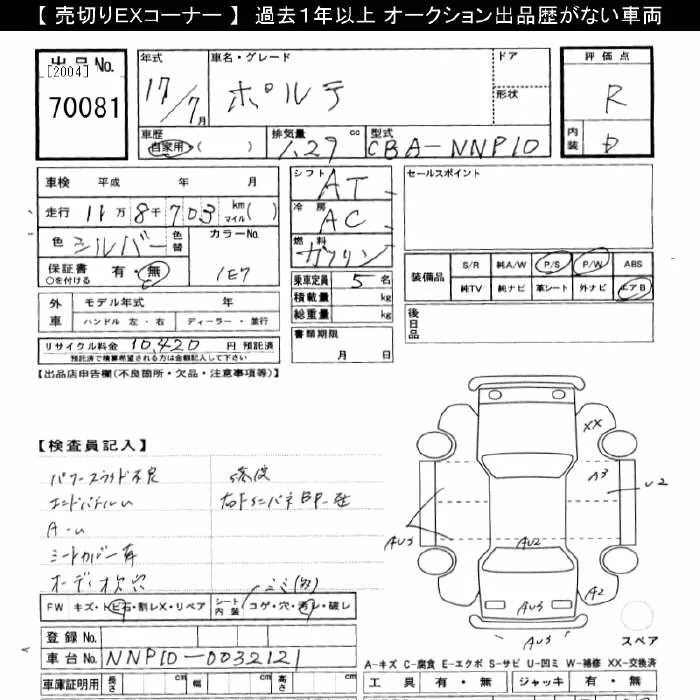 【 売切りEXコーナー 】 過去1年以上 オークション出品歴がない車両
出品No.
[2004]
70081
年式
17/7月
車名・グレード
ポルテ
ドア
形状
評価点
R
内装
D
車歴
自家用・( )
排気量 cc
1.29
型式
CBA-NNP10
車検 平成 年 月
走行 11万8千703 km マイル( )
色 シルバー 色替
カラーNo.
1E7
保証書 有・無
○を付ける
外車 モデル年式 年
ハンドル 左・右 ディーラー・並行
リサイクル料金 10,420 円 預託済
預託済で精算希望される方は金額記入して下さい
シフト AT
冷房 AC
燃料 ガソリン
乗車定員 5 名
積載量 kg
総重量 kg
書類期限
月 日
セールスポイント
装備品
S/R 純A/W P/S P/W ABS
純TV 純ナビ 革シート 外ナビ エアB
後日品
【出品店申告欄(不良箇所・欠品・注意事項等)】
【検査員記入】
パワースライド不良
A-U
シートカバー有
オーディオ欠穴
FW キズ・トビ石・割レX・リペア
シート内装 コゲ・穴・汚レ・破レ
登録No.
車台No. NNP10-0032121
車庫証明用 長さ cm 幅 cm 高さ cm
XX
A3
U2
AU3
AU2
A2
AU3
AU3
スペア
A-キズ C-腐食 E-エクボ S-サビ U-凹ミ W-補修 XX-交換済
工具 有・無 ジャッキ 有・無